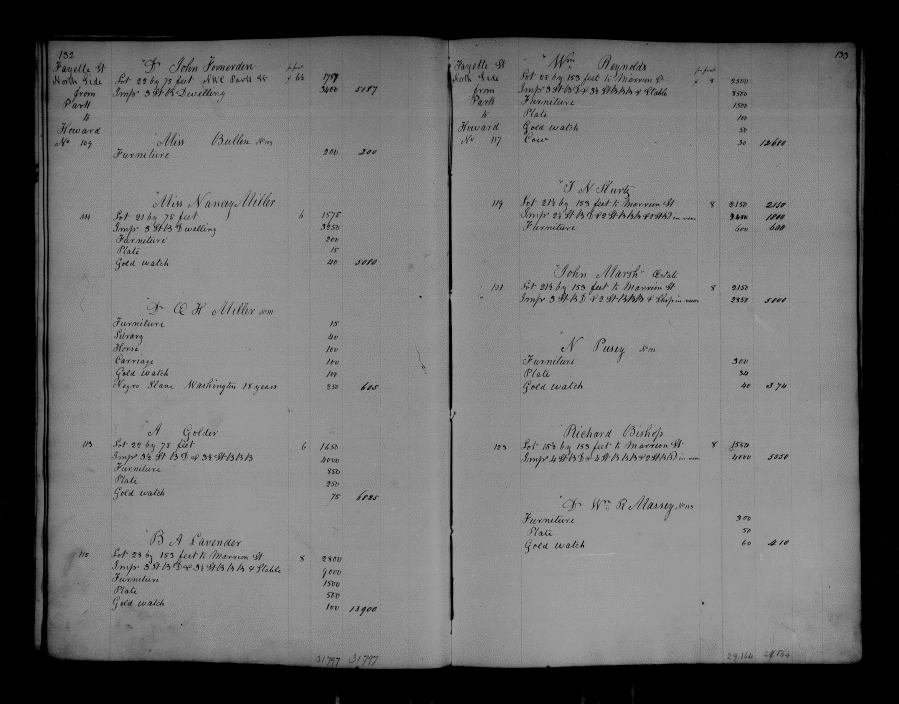 132
Fayette St
North Side
from
Park
to
Howard
Dr John Fonerden
Lot 22 by 75 feet
1787
Imp 3 St B Dwelling 3400 5187
No 109 Miss Bullen No 109
Furniture 200 200
Miss Nancy Miller
111 Lot 21 by 75 feet 6 1575
Imp 3 St B Dwelling 3250
Furniture 200
Plate 15
Gold watch 40 5080
Dr H Miller No 111
Furniture 15
Library 40
Horse 100
Carriage 100
Gold watch 100
Negro Slave Washington 18 years 250 605
A Golder
113 Lot 22 by 75 feet 6 1650
Imp 3½ St B D & 3½ St B B B 4000
Furniture 850
Plate 250
Gold watch 75 6825
B A Lavender
115 Lot 23 by 153 feet to Marrion St 8 2800
Imp 3 St B D & 3½ St B B B & Stable 9000
Furniture 1500
Plate 500
Gold watch 100 13900
31797 31797
133
Fayette St
North Side
from
Park
to
Howard
Wm Reynolds
No 117
Lot 25 by 153 feet to Marrion St 8 2500
Imp 3 St B D & 3½ St B B B & Stable 8500
Furniture 1500
Plate 100
Gold watch 50
Cow 30 12680
T N Kurtz
119 Lot 21½ by 153 feet to Marrion St 8 2150 2150
Furniture 600 600
John Marsh Estate
121 Lot 21½ by 153 feet to Marrion St 8 2150
Imp 3 St B D & 2 St B B B & Shop in rear 2850 5000
N Pusey No 121
Furniture 300
Plate 34
Gold watch 40 374
Richard Bishop
123 Lot 15½ by 153 feet to Marrion St 8 1550
Imp 4 St B D & 4 St B B B & 2 St B D in rear 4000 5550
Dr Wm R Massey No 123
Furniture 300
Plate 50
Gold watch 60 410